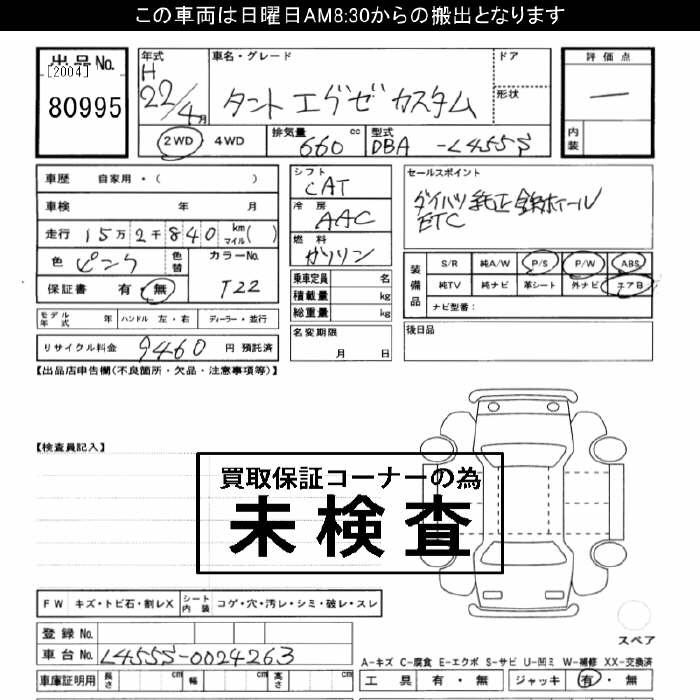 この車両は日曜日AM8:30からの搬出となります
出品No.
[2004]
80995
年式
H
22/4月
車名・グレード
タント エグゼ カスタム
ドア
形状
評価点
—
内装
2WD 4WD
排気量
660 cc
型式
DBA -L455S
車歴 自家用・( )
車検 年 月
走行 15万2千840 km マイル( )
色 ピンク 色替
カラーNo.
T22
保証書 有・無
モデル年式 年 ハンドル 左・右 ディーラー・並行
リサイクル料金 9460 円 預託済
シフト
CAT
冷房
AAC
燃料
ガソリン
乗車定員 名
積載量 kg
総重量 kg
名変期限
月 日
セールスポイント
ダイハツ純正ホイール
ETC
装備品
S/R 純A/W P/S P/W ABS
純TV 純ナビ 革シート 外ナビ エアB
ナビ型番:
後日品
【出品店申告欄(不良箇所・欠品・注意事項等)】
【検査員記入】
買取保証コーナーの為
未検査
FW キズ・トビ石・割レX シート内装 コゲ・穴・汚レ・シミ・破レ・スレ
登録No.
車台No. L455S-0024263
車庫証明用 長さ cm 幅 cm 高さ cm
スペア
A-キズ C-腐食 E-エクボ S-サビ U-凹ミ W-補修 XX-交換済
工具 有・無 ジャッキ 有・無